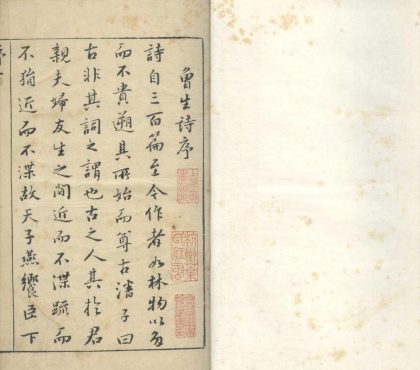 魯生詩序
詩自三百篇至今作者如林物以多
而不貴遡其所始而尊古潘子曰
古非其詞之謂也古之人其於君
親夫婦友生之間近而不渫疏而
不猾近而不渫故天子燕饗臣下